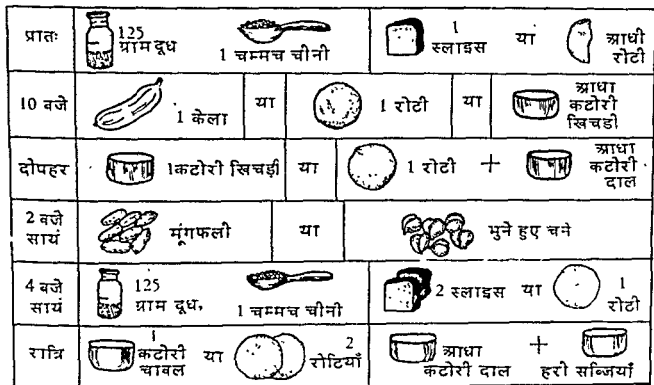 प्रातः
125
ग्राम दूध
1 चम्मच चीनी
1
स्लाइस
या
आधी
रोटी
10 बजे
1 केला
या
1 रोटी
या
आधा
कटोरी
खिचडी
दोपहर
1कटोरी खिचड़ी
या
1 रोटी
+
आधा
कटोरी
दाल
2 बजे
सायं
मूंगफली
या
भुने हुए चने
4 बजे
सायं
125
ग्राम दूध,
1 चम्मच चीनी
2 स्लाइस
या
1
रोटी
रात्रि
1
कटोरी
चावल
या
2
रोटियाँ
आधा
कटोरी दाल
+
हरी सब्जियाँ